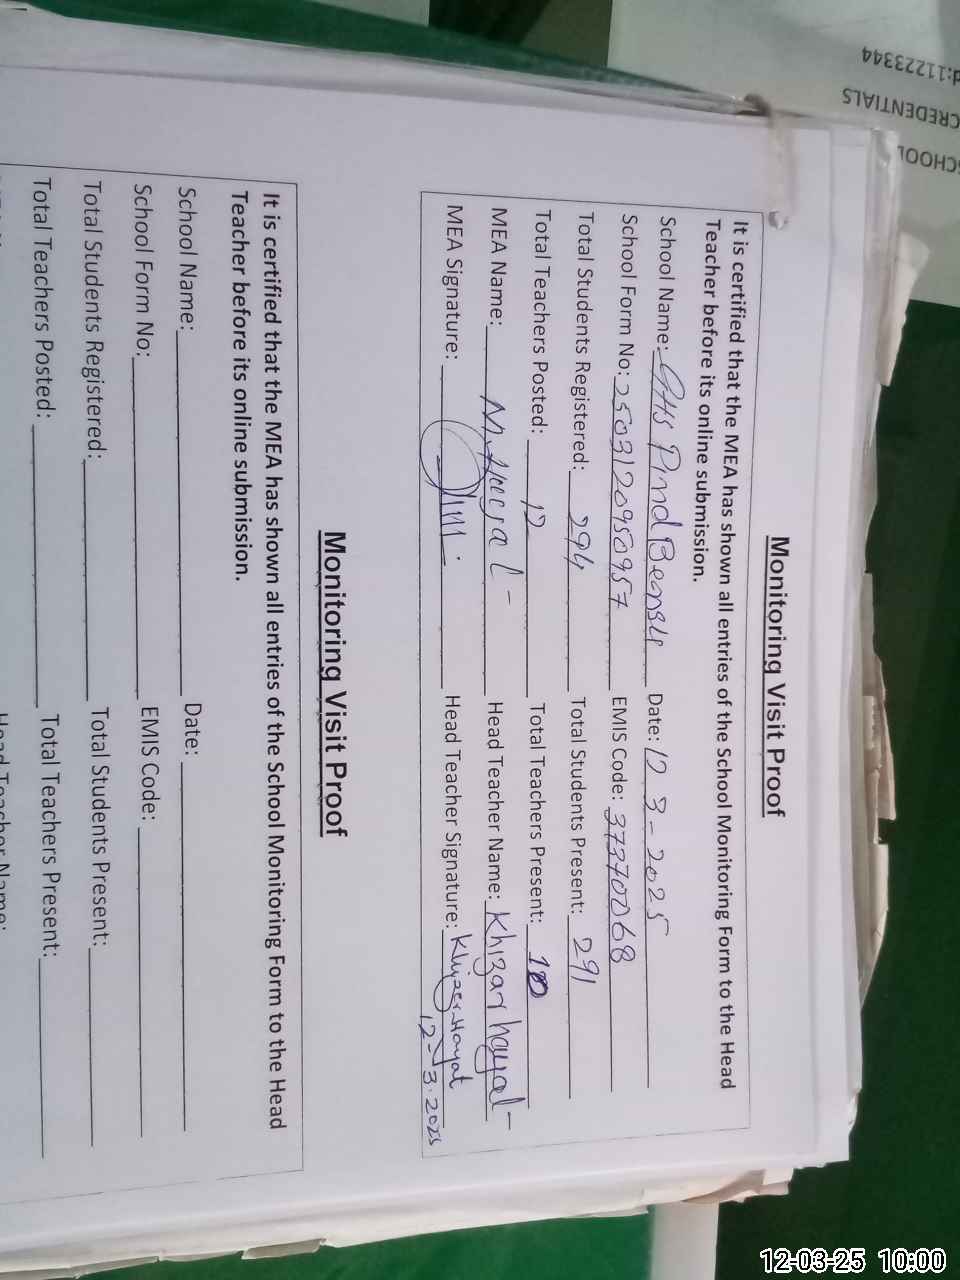 Monitoring Visit Proof
It is certified that the MEA has shown all entries of the School Monitoring Form to the Head
Teacher before its online submission.
School Name: GHS Pind Bensu Date: 12 3-2025
School Form No: 2503120950957 EMIS Code: 37370068
Total Students Registered: 294 Total Students Present: 291
Total Teachers Posted: 12 Total Teachers Present: 10
MEA Name: Head Teacher Name: Khizar hayat
MEA Signature: Head Teacher Signature: Khizer Hayat
12-3.2025
Monitoring Visit Proof
It is certified that the MEA has shown all entries of the School Monitoring Form to the Head
Teacher before its online submission.
School Name: Date:
School Form No: EMIS Code:
Total Students Registered: Total Students Present:
Total Teachers Posted: Total Teachers Present:
Head Teacher Name:
CREDENTIALS
d:11223344
12-03-25 10:00